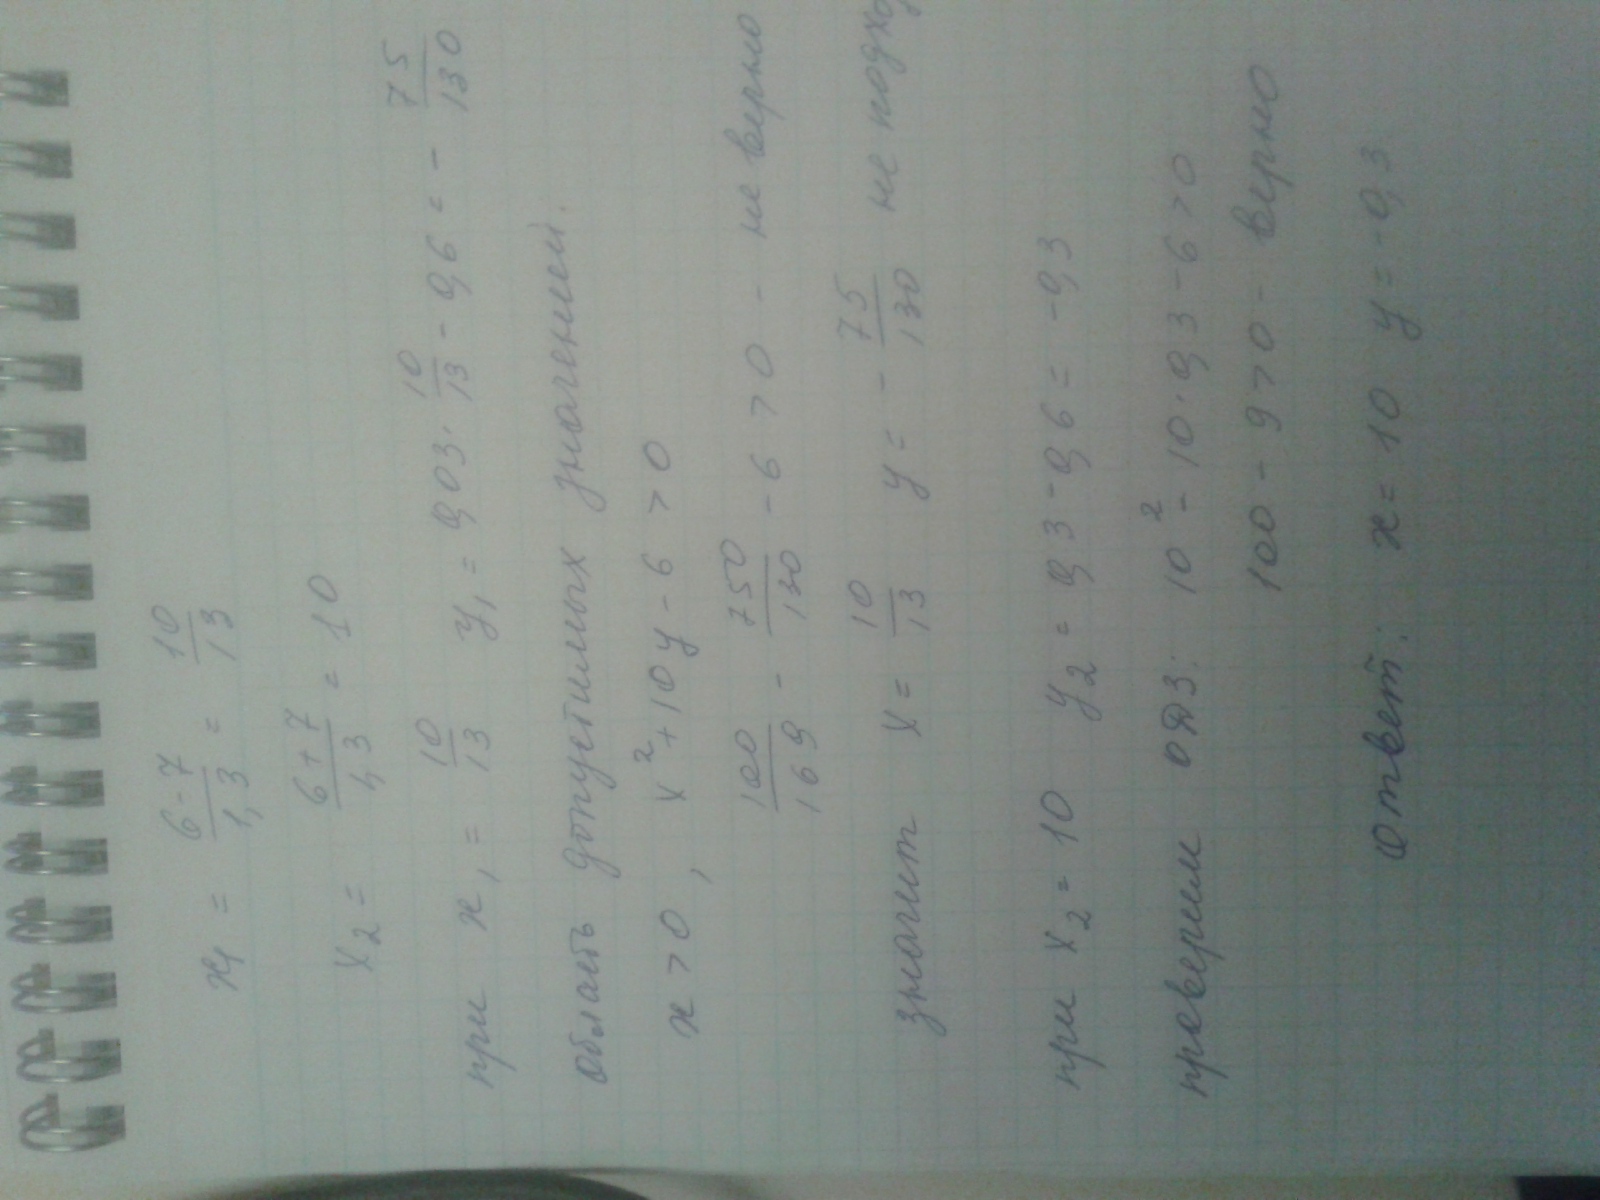 x₁ = (6-7)/1,3 = 10/13
x₂ = (6+7)/1,3 = 10
при x₁ = 10/13 y₁ = 0,03 · 10/13 - 0,6 = - 75/130
область допустимых значений.
x > 0, x² + 10y - 6 > 0
100/169 - 750/130 - 6 > 0 - не верно
значит x = 10/13 y = - 75/130 не подхо
при x₂ = 10 y₂ = 0,3 - 0,6 = -0,3
проверим ОДЗ: 10² - 10 · 0,3 - 6 > 0
100 - 9 > 0 - верно
Ответ: x = 10 y = -0,3